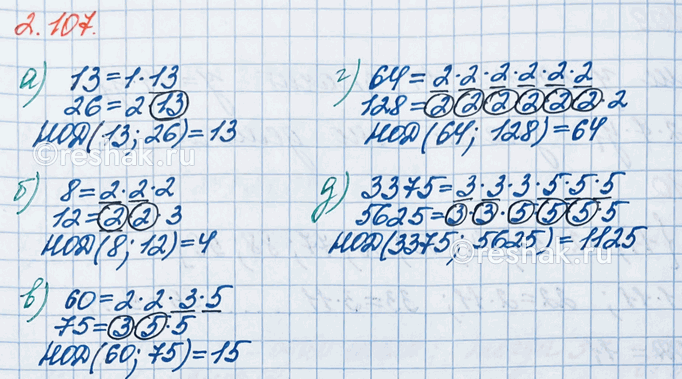 2.107.
а) 13=1·13
26=2·13
НОД(13; 26)=13
б) 8=2·2·2
12=2·2·3
НОД(8; 12)=4
в) 60=2·2·3·5
75=3·5·5
НОД(60; 75)=15
г) 64=2·2·2·2·2·2
128=2·2·2·2·2·2·2
НОД(64; 128)=64
д) 3375=3·3·3·5·5·5
5625=3·3·5·5·5·5
НОД(3375; 5625)=1125
©reshak.ru
©reshak.ru
©reshak.ru